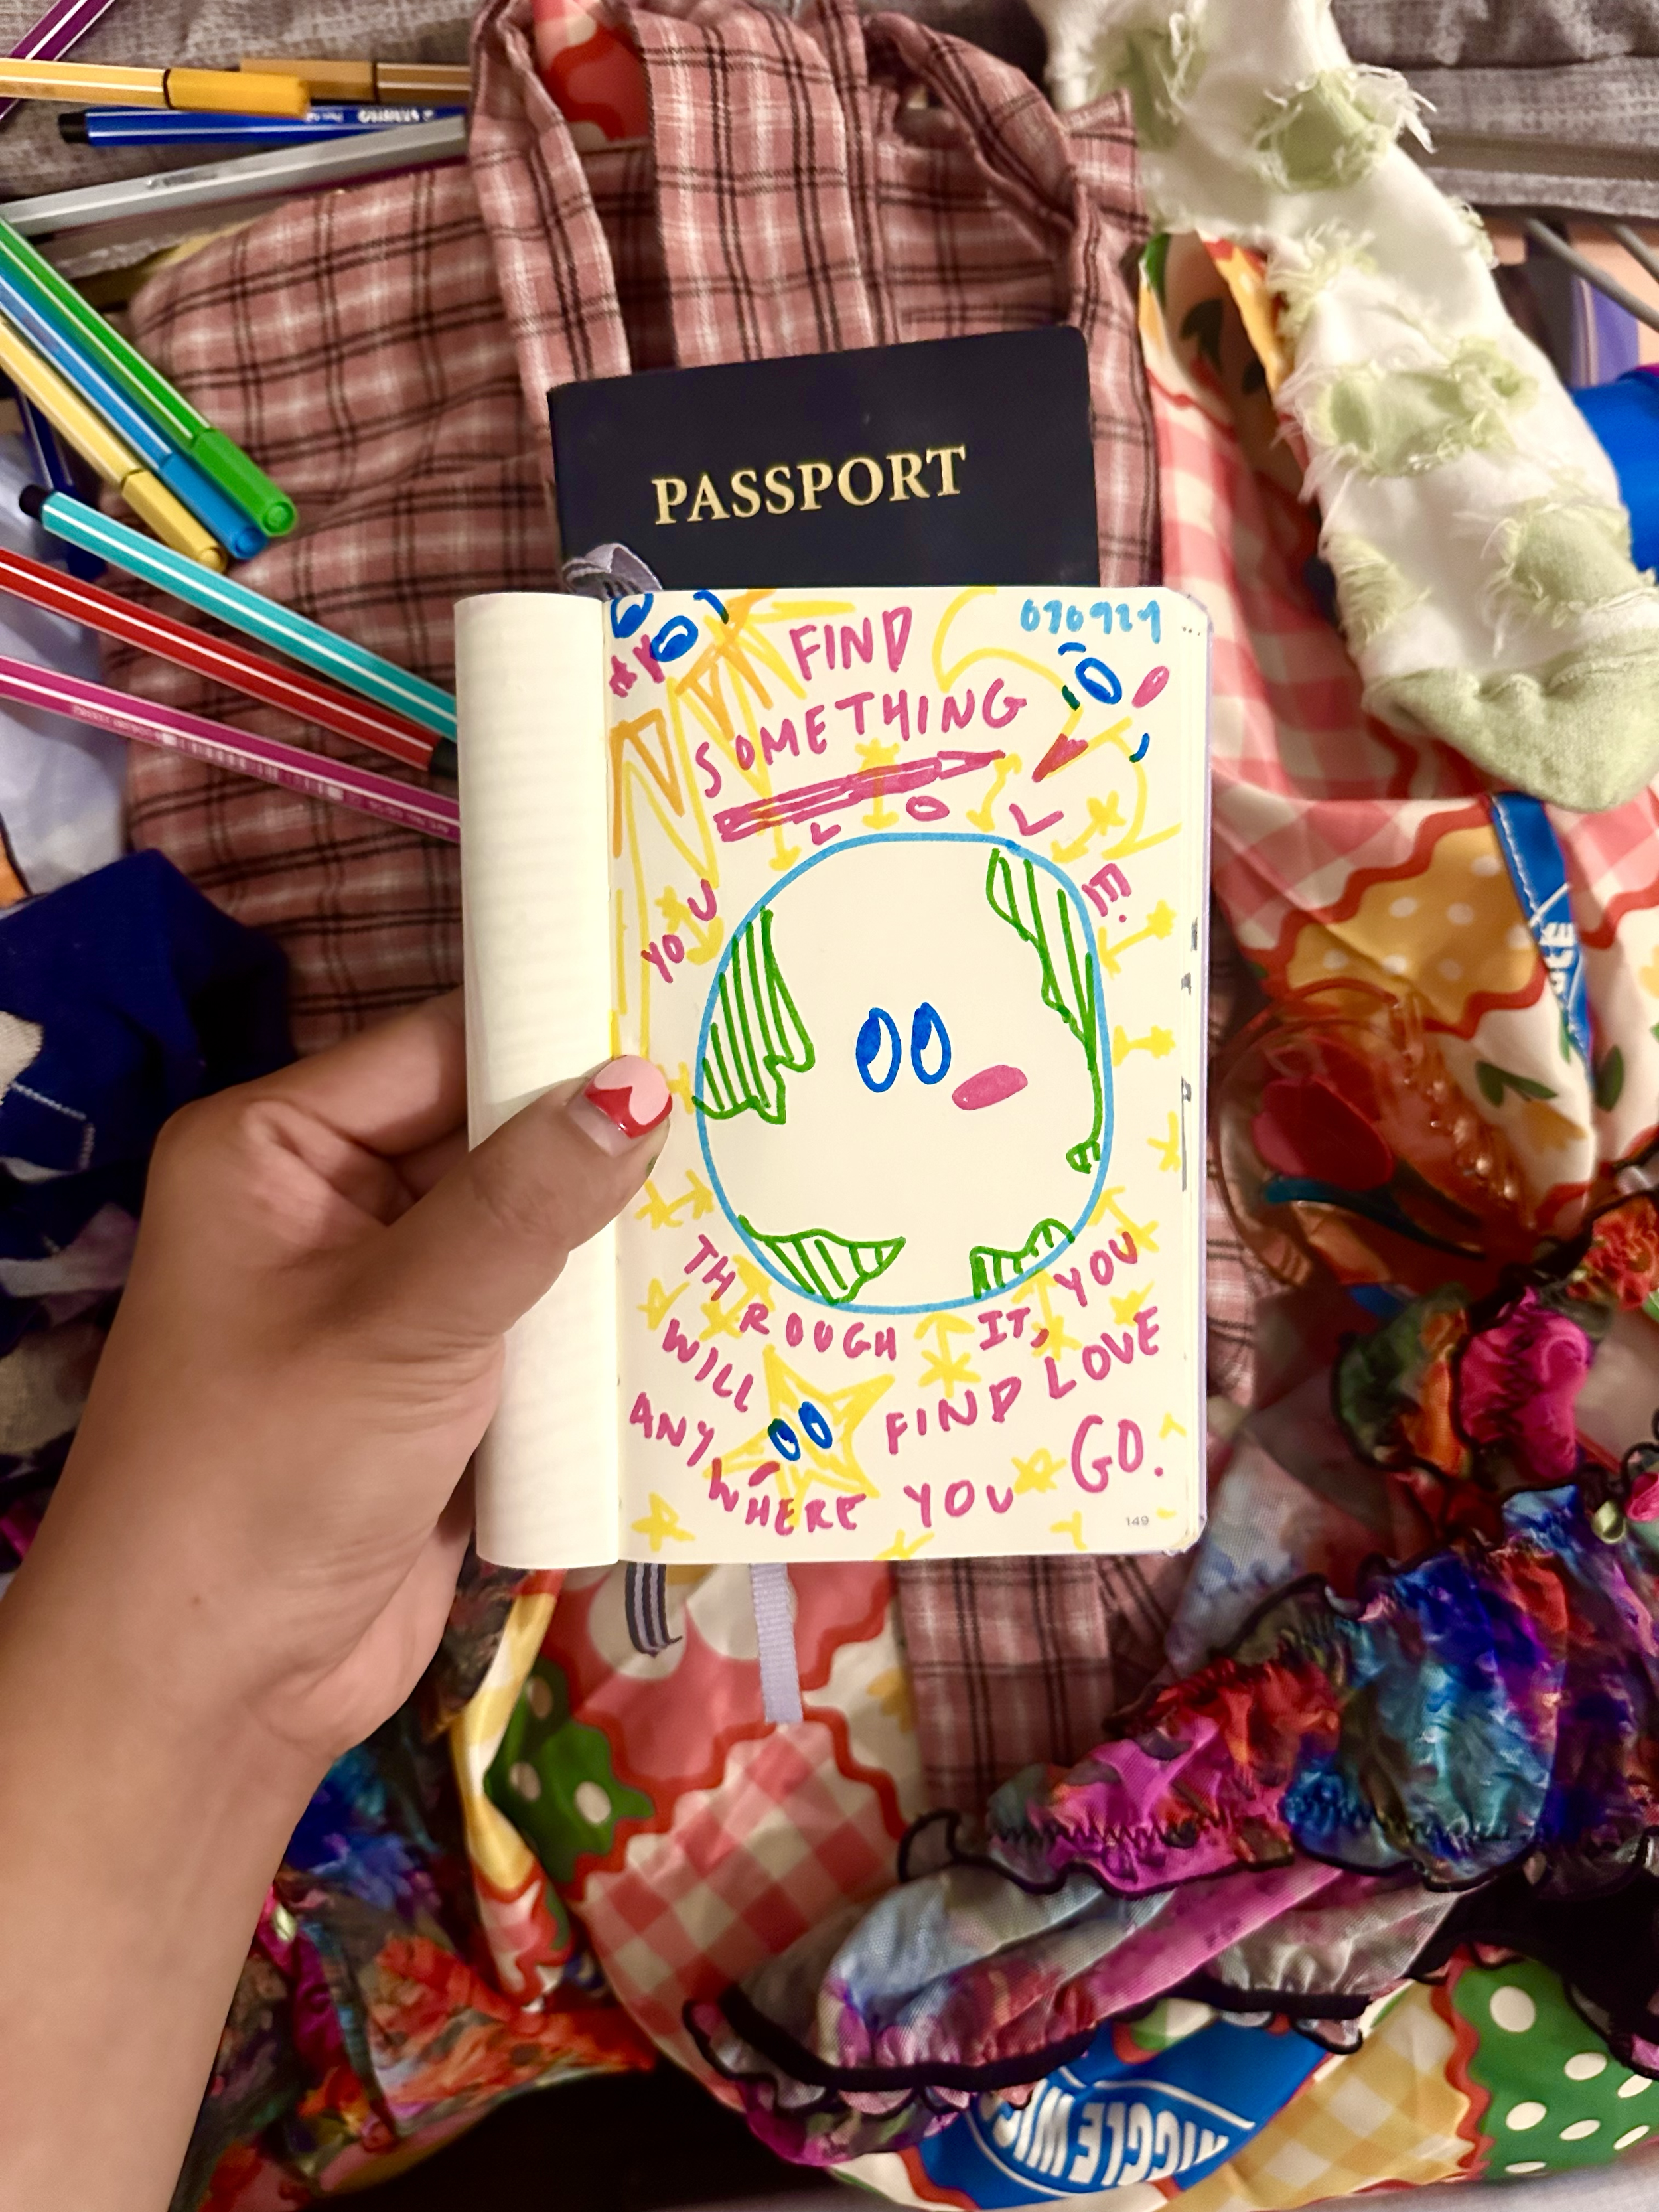 STABILO
PASSPORT
090924
FIND
SOMETHING
YOU LOVE.
THROUGH IT, YOU
WILL FIND LOVE
ANYWHERE YOU GO.
149